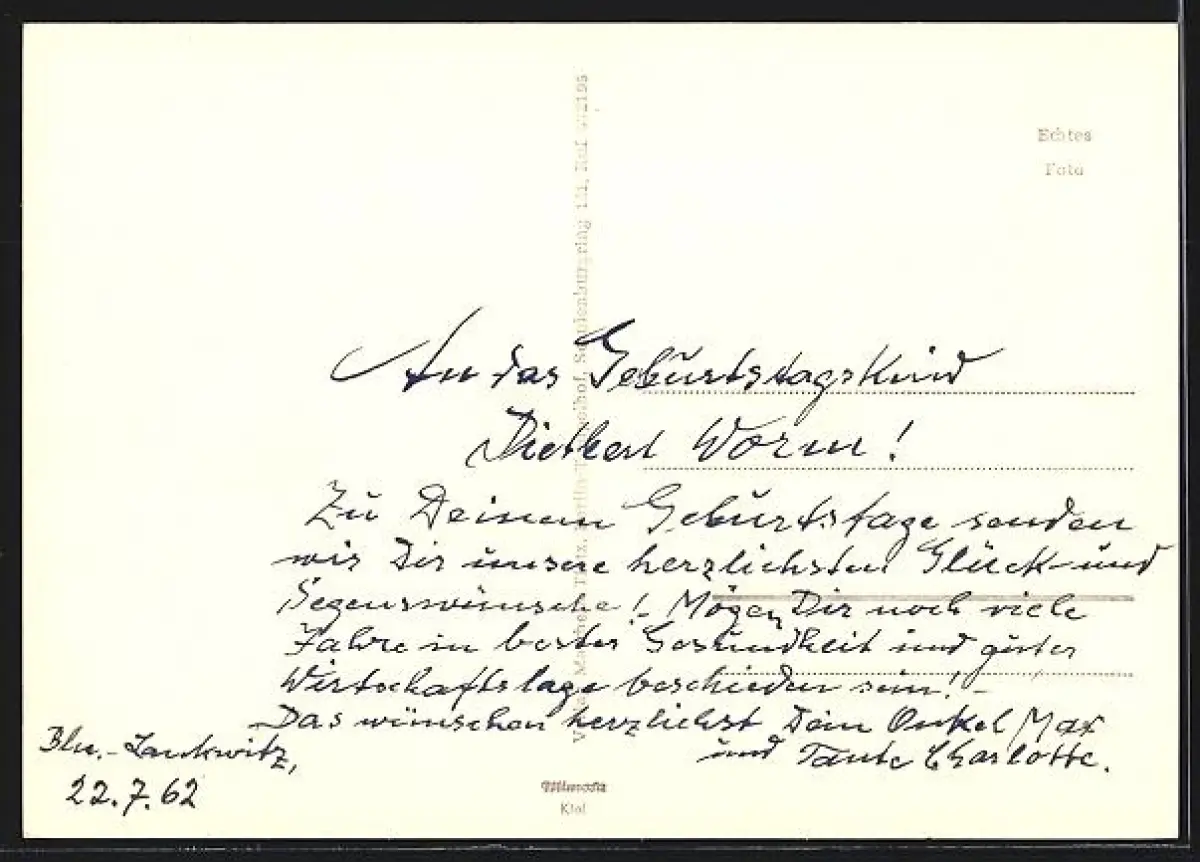 Echtes
Foto
An das Geburtstagskind
Dietbert Worm!
Zu Deinem Geburtstage senden
wir Dir unsere herzlichsten Glück- und
Segenswünsche! - Mögen Dir noch viele
Jahre in bester Gesundheit und guter
Wirtschaftslage beschieden sein! -
Das wünschen herzlichst Dein Onkel Max
und Tante Charlotte.
Bln.-Lankwitz,
22.7.62
Mimosa
Kiel